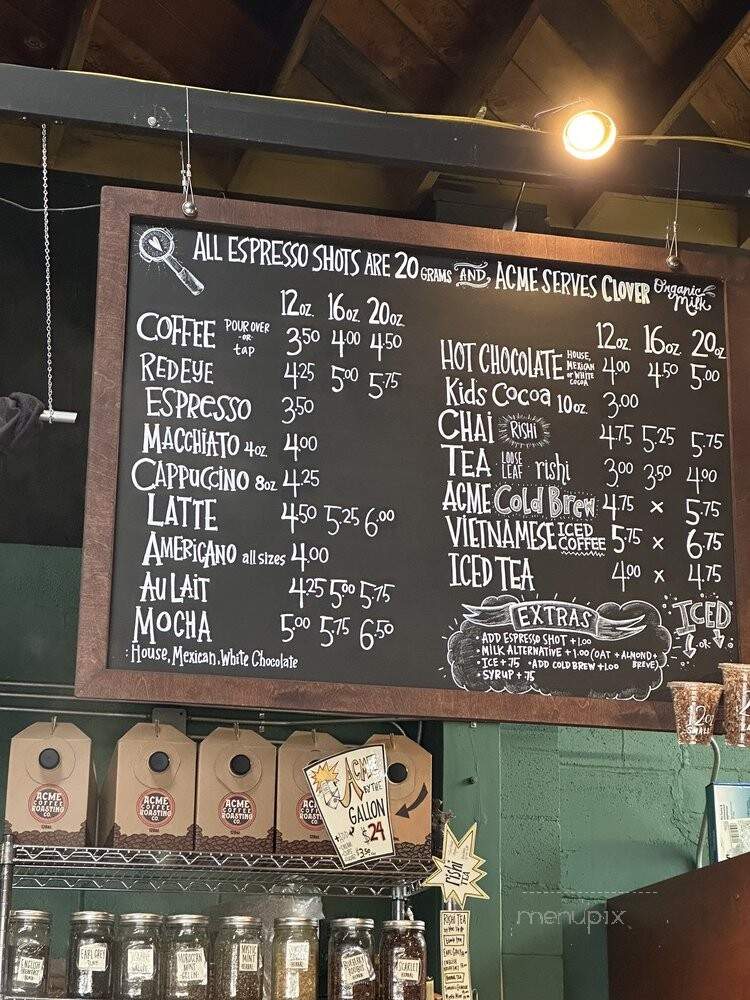 ALL ESPRESSO SHOTS ARE 20 GRAMS AND ACME SERVES CLOVER Organic Milk
12oz 16oz 20oz
COFFEE POUR OVER -OR- tap 3.50 4.00 4.50
RED EYE 4.25 5.00 5.75
ESPRESSO 3.50
MACCHIATO 4oz 4.00
CAPPUCCINO 8oz 4.25
LATTE 4.50 5.25 6.00
AMERICANO all sizes 4.00
AU LAIT 4.25 5.00 5.75
MOCHA 5.00 5.75 6.50
: House, Mexican, White Chocolate
12oz 16oz 20oz
HOT CHOCOLATE HOUSE, MEXICAN or WHITE COCOA 4.00 4.50 5.00
Kids Cocoa 10oz. 3.00
CHAI RISHI 4.75 5.25 5.75
TEA LOOSE LEAF rishi 3.00 3.50 4.00
ACME Cold Brew 4.75 x 5.75
VIETNAMESE ICED COFFEE 5.75 x 6.75
ICED TEA 4.00 x 4.75
EXTRAS
• ADD ESPRESSO SHOT +1.00
• MILK ALTERNATIVE +1.00 (OAT + ALMOND + BREVE)
• ICE +.75 • ADD COLD BREW +1.00
• SYRUP +.75
ICED
-OR-
ACME COFFEE ROASTING CO.
ACME COFFEE ROASTING CO.
ACME COFFEE ROASTING CO.
ACME
ACME BY THE GALLON
$24
$3.50
12oz SMALL
rishi TEA
RISHI TEA
EARL GREY
ENGLISH BREAKFAST
EARL GREY
MOROCCAN MINT GREEN
MYSTIC MINT HERBAL
BLUEBERRY ROOIBOS HERBAL
SCARLET
menupix